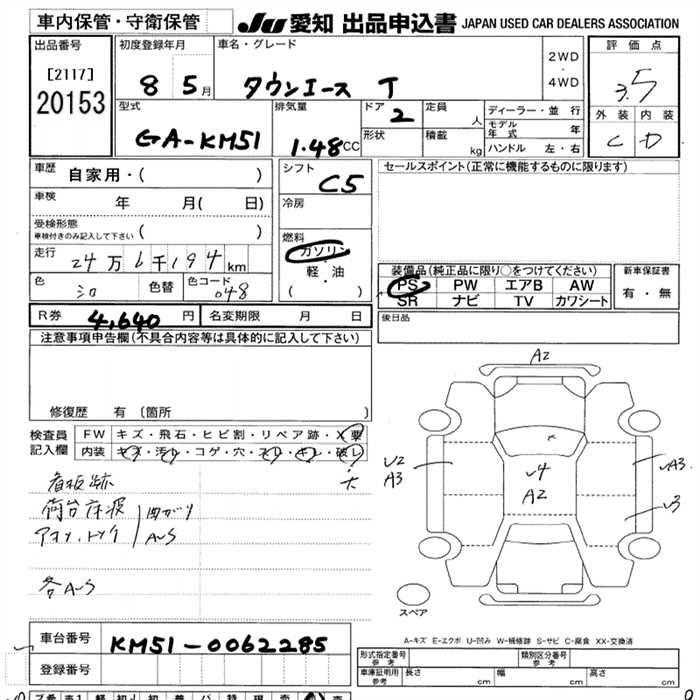 車内保管・守衛保管
JU 愛知 出品申込書 JAPAN USED CAR DEALERS ASSOCIATION
出品番号
[2117]
20153
初度登録年月
8 5月
車名・グレード
タウンエース T
2WD
・
4WD
評価点
3.5
外装 内装
C D
型式
GA-KM51
排気量
1.48CC
ドア
2
形状
定員
人
積載
kg
ディーラー・並行
モデル年式
年
ハンドル 左・右
車歴
自家用・( )
車検
年 月( 日)
受検形態
車検付きのみ記入して下さい ( )
走行
24万6千194km
色
シロ
色替
色コード
048
シフト
C5
冷房
燃料
ガソリン
・
軽・油
( )
セールスポイント(正常に機能するものに限ります)
装備品(純正品に限り○をつけてください)
PS PW エアB AW
SR ナビ TV カワシート
新車保証書
有・無
後日品
R券 4,640円
名変期限 月 日
注意事項申告欄(不具合内容等は具体的に記入して下さい)
修復歴 有 (箇所 )
検査員
記入欄
FW キズ・飛石・ヒビ割・リペア跡・X
内装 キズ・汚レ・コゲ・穴・スレ・キレ・破レ
大
看板跡
荷台床波
曲がり
A~S
各A~S
A2
U2
A3
U4
A2
A3
U3
スペア
A-キズ E-エクボ U-凹み W-補修跡 S-サビ C-腐食 XX-交換済
車台番号
KM51-0062285
登録番号
形式指定番号
参考
類別区分番号
参考
車庫証明用
参考
長さ cm
幅 cm
高さ cm